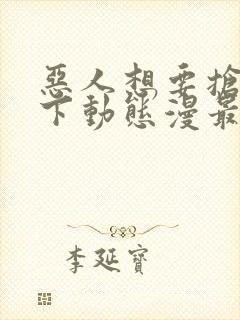 惡人想要搶
下動態漫最
李延寶